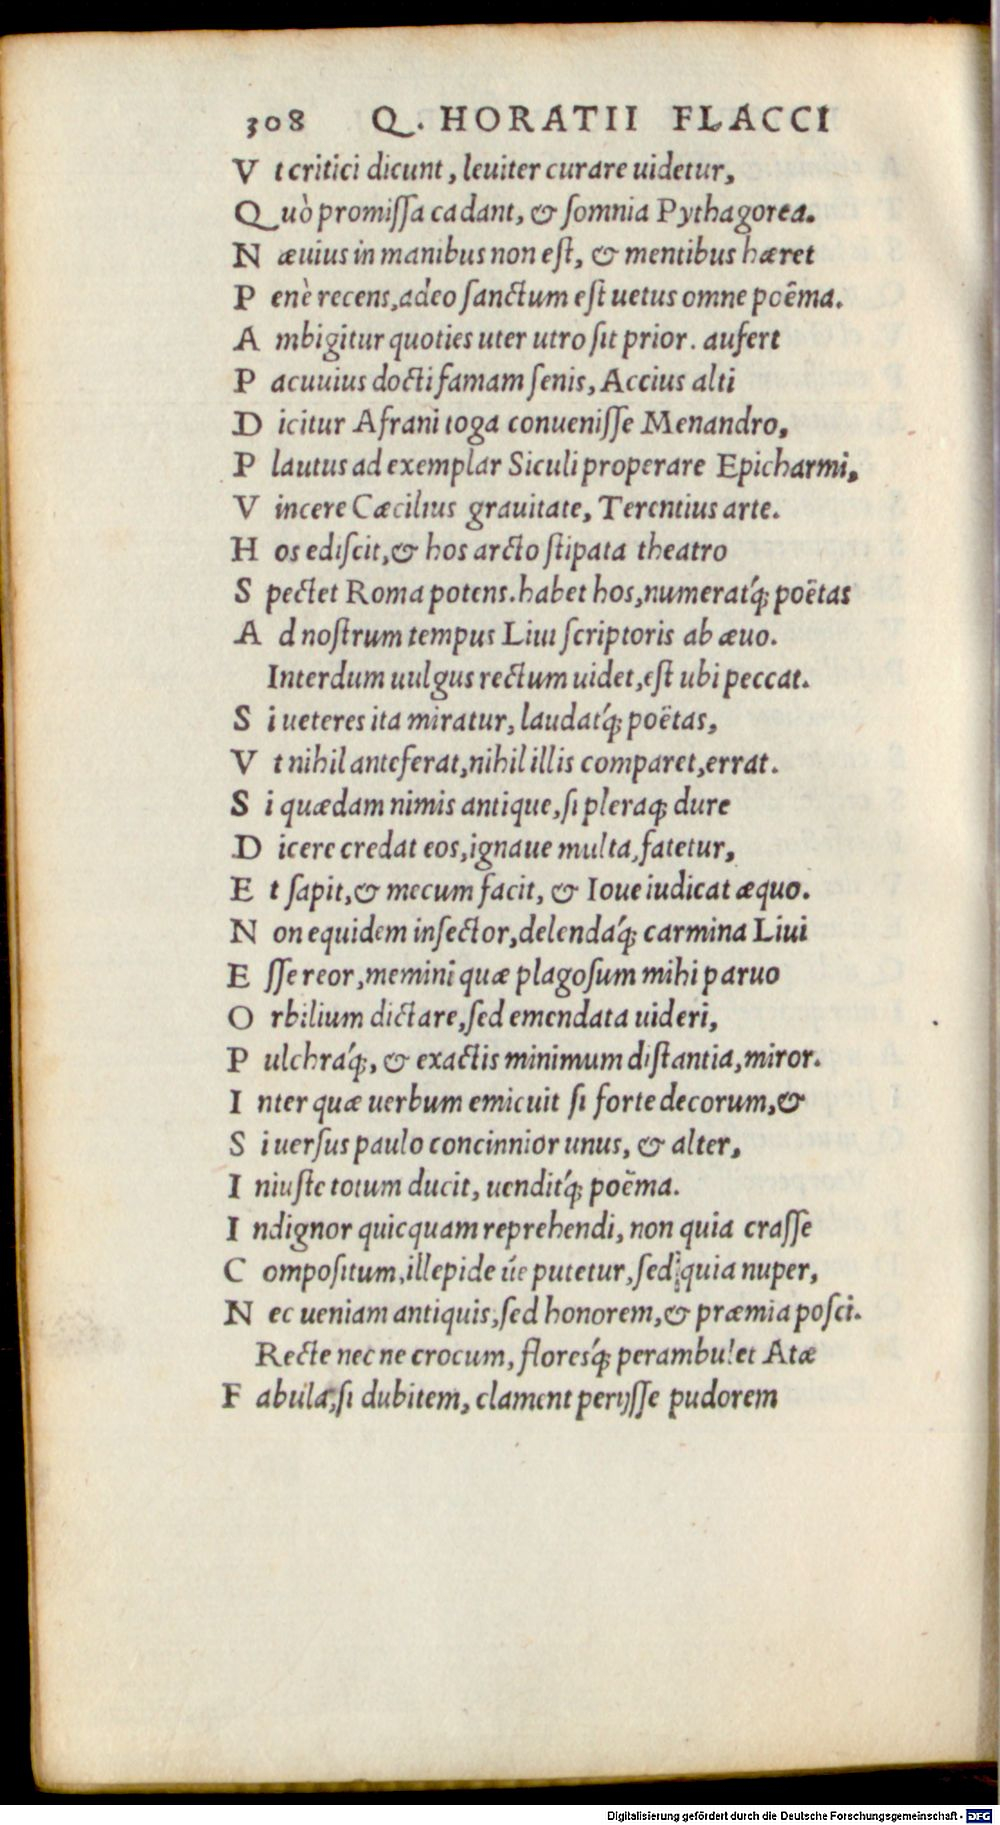 308 Q. HORATII FLACCI
V t critici dicunt, leuiter curare uidetur,
Q uò promiſſa cadant, & ſomnia Pythagorea.
N æuius in manibus non eſt, & mentibus hæret
P enè recens, adeo ſanctum eſt uetus omne poëma.
A mbigitur quoties uter utro ſit prior. aufert
P acuuius docti famam ſenis, Accius alti
D icitur Afrani toga conueniſſe Menandro,
P lautus ad exemplar Siculi properare Epicharmi,
V incere Cæcilius grauitate, Terentius arte.
H os ediſcit, & hos arcto ſtipata theatro
S pectet Roma potens. habet hos, numeratq́; poëtas
A d noſtrum tempus Liui ſcriptoris ab æuo.
Interdum uulgus rectum uidet, eſt ubi peccat.
S i ueteres ita miratur, laudatq́; poëtas,
V t nihil anteferat, nihil illis comparet, errat.
S i quædam nimis antique, ſi pleraq; dure
D icere credat eos, ignaue multa, fatetur,
E t ſapit, & mecum facit, & Ioue iudicat æquo.
N on equidem inſector, delendaq́; carmina Liui
E ſſe reor, memini quæ plagoſum mihi paruo
O rbilium dictare, ſed emendata uideri,
P ulchraq́;, & exactis minimum diſtantia, miror.
I nter quæ uerbum emicuit ſi forte decorum, &
S i uerſus paulo concinnior unus, & alter,
I niuſte totum ducit, uenditq́; poëma.
I ndignor quicquam reprehendi, non quia craſſe
C ompoſitum, illepide úe putetur, ſed quia nuper,
N ec ueniam antiquis, ſed honorem, & præmia poſci.
Recte nec ne crocum, floresq́; perambulet Atæ
F abula, ſi dubitem, clament perijſſe pudorem
Digitalisierung gefördert durch die Deutsche Forschungsgemeinschaft - DFG